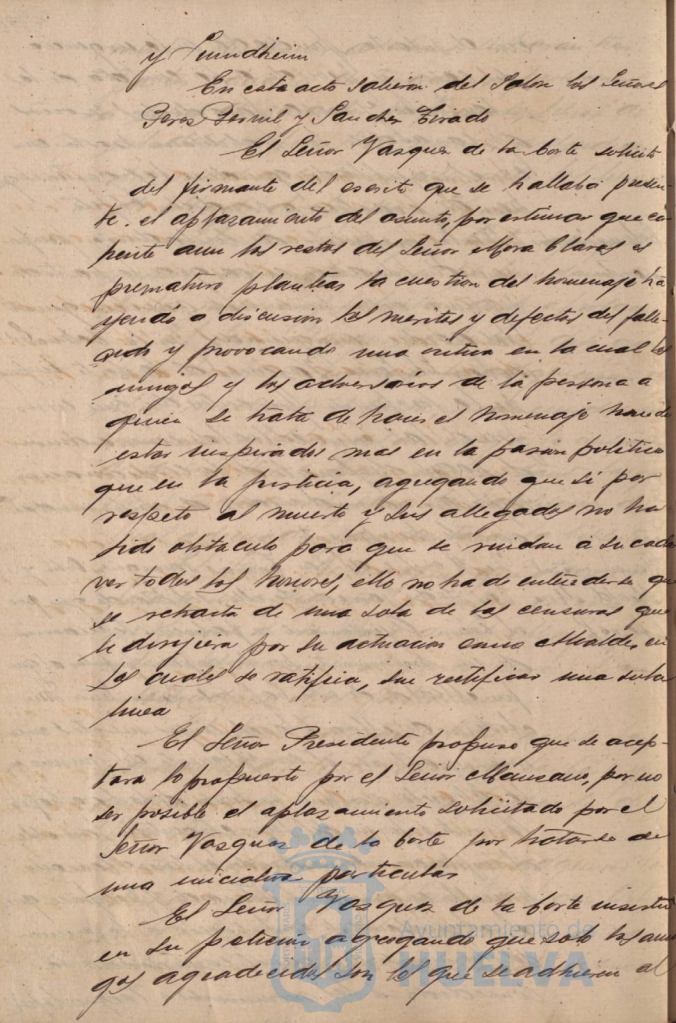 y Sundheim
En este acto salieron del Salon los Señores
Perez Bernil y Sanchez Tirado
El Señor Vazquez de la Corte solicitó
del firmante del escrito que se hallaba presen-
te, el aplazamiento del asunto, por estimar que
aun los restos del Señor Mora Claros es
prematuro plantear la cuestion del homenaje tra
yendo a discusion los meritos y defectos del falle-
cido y provocando una critica en la cual los
amigos y los adversarios de la persona a
quien se trata de hacer el homenaje han de
estar inspirados mas en la pasion politica
que en la justicia, agregando que si por
respeto al muerto y sus allegados no ha
sido obstaculo para que se rindan á su cada
ver todos los honores, ello no ha de entenderse que
se retracta de una sola de las censuras que
le dirijiera por su actuacion como Alcalde, en
las cuales se ratifica, sin rectificar una sola
linea
El Señor Presidente propuso que se acep-
tara lo propuesto por el Señor Manzano, por no
ser posible el aplazamiento solicitado por el
Señor Vazquez de la Corte por tratarse de
una iniciativa particular
El Señor Vazquez de la Corte insistió
en su peticion agregando que solo los ami
gos agradecidos son los que se adhieren al
Ayuntamiento de
HUELVA